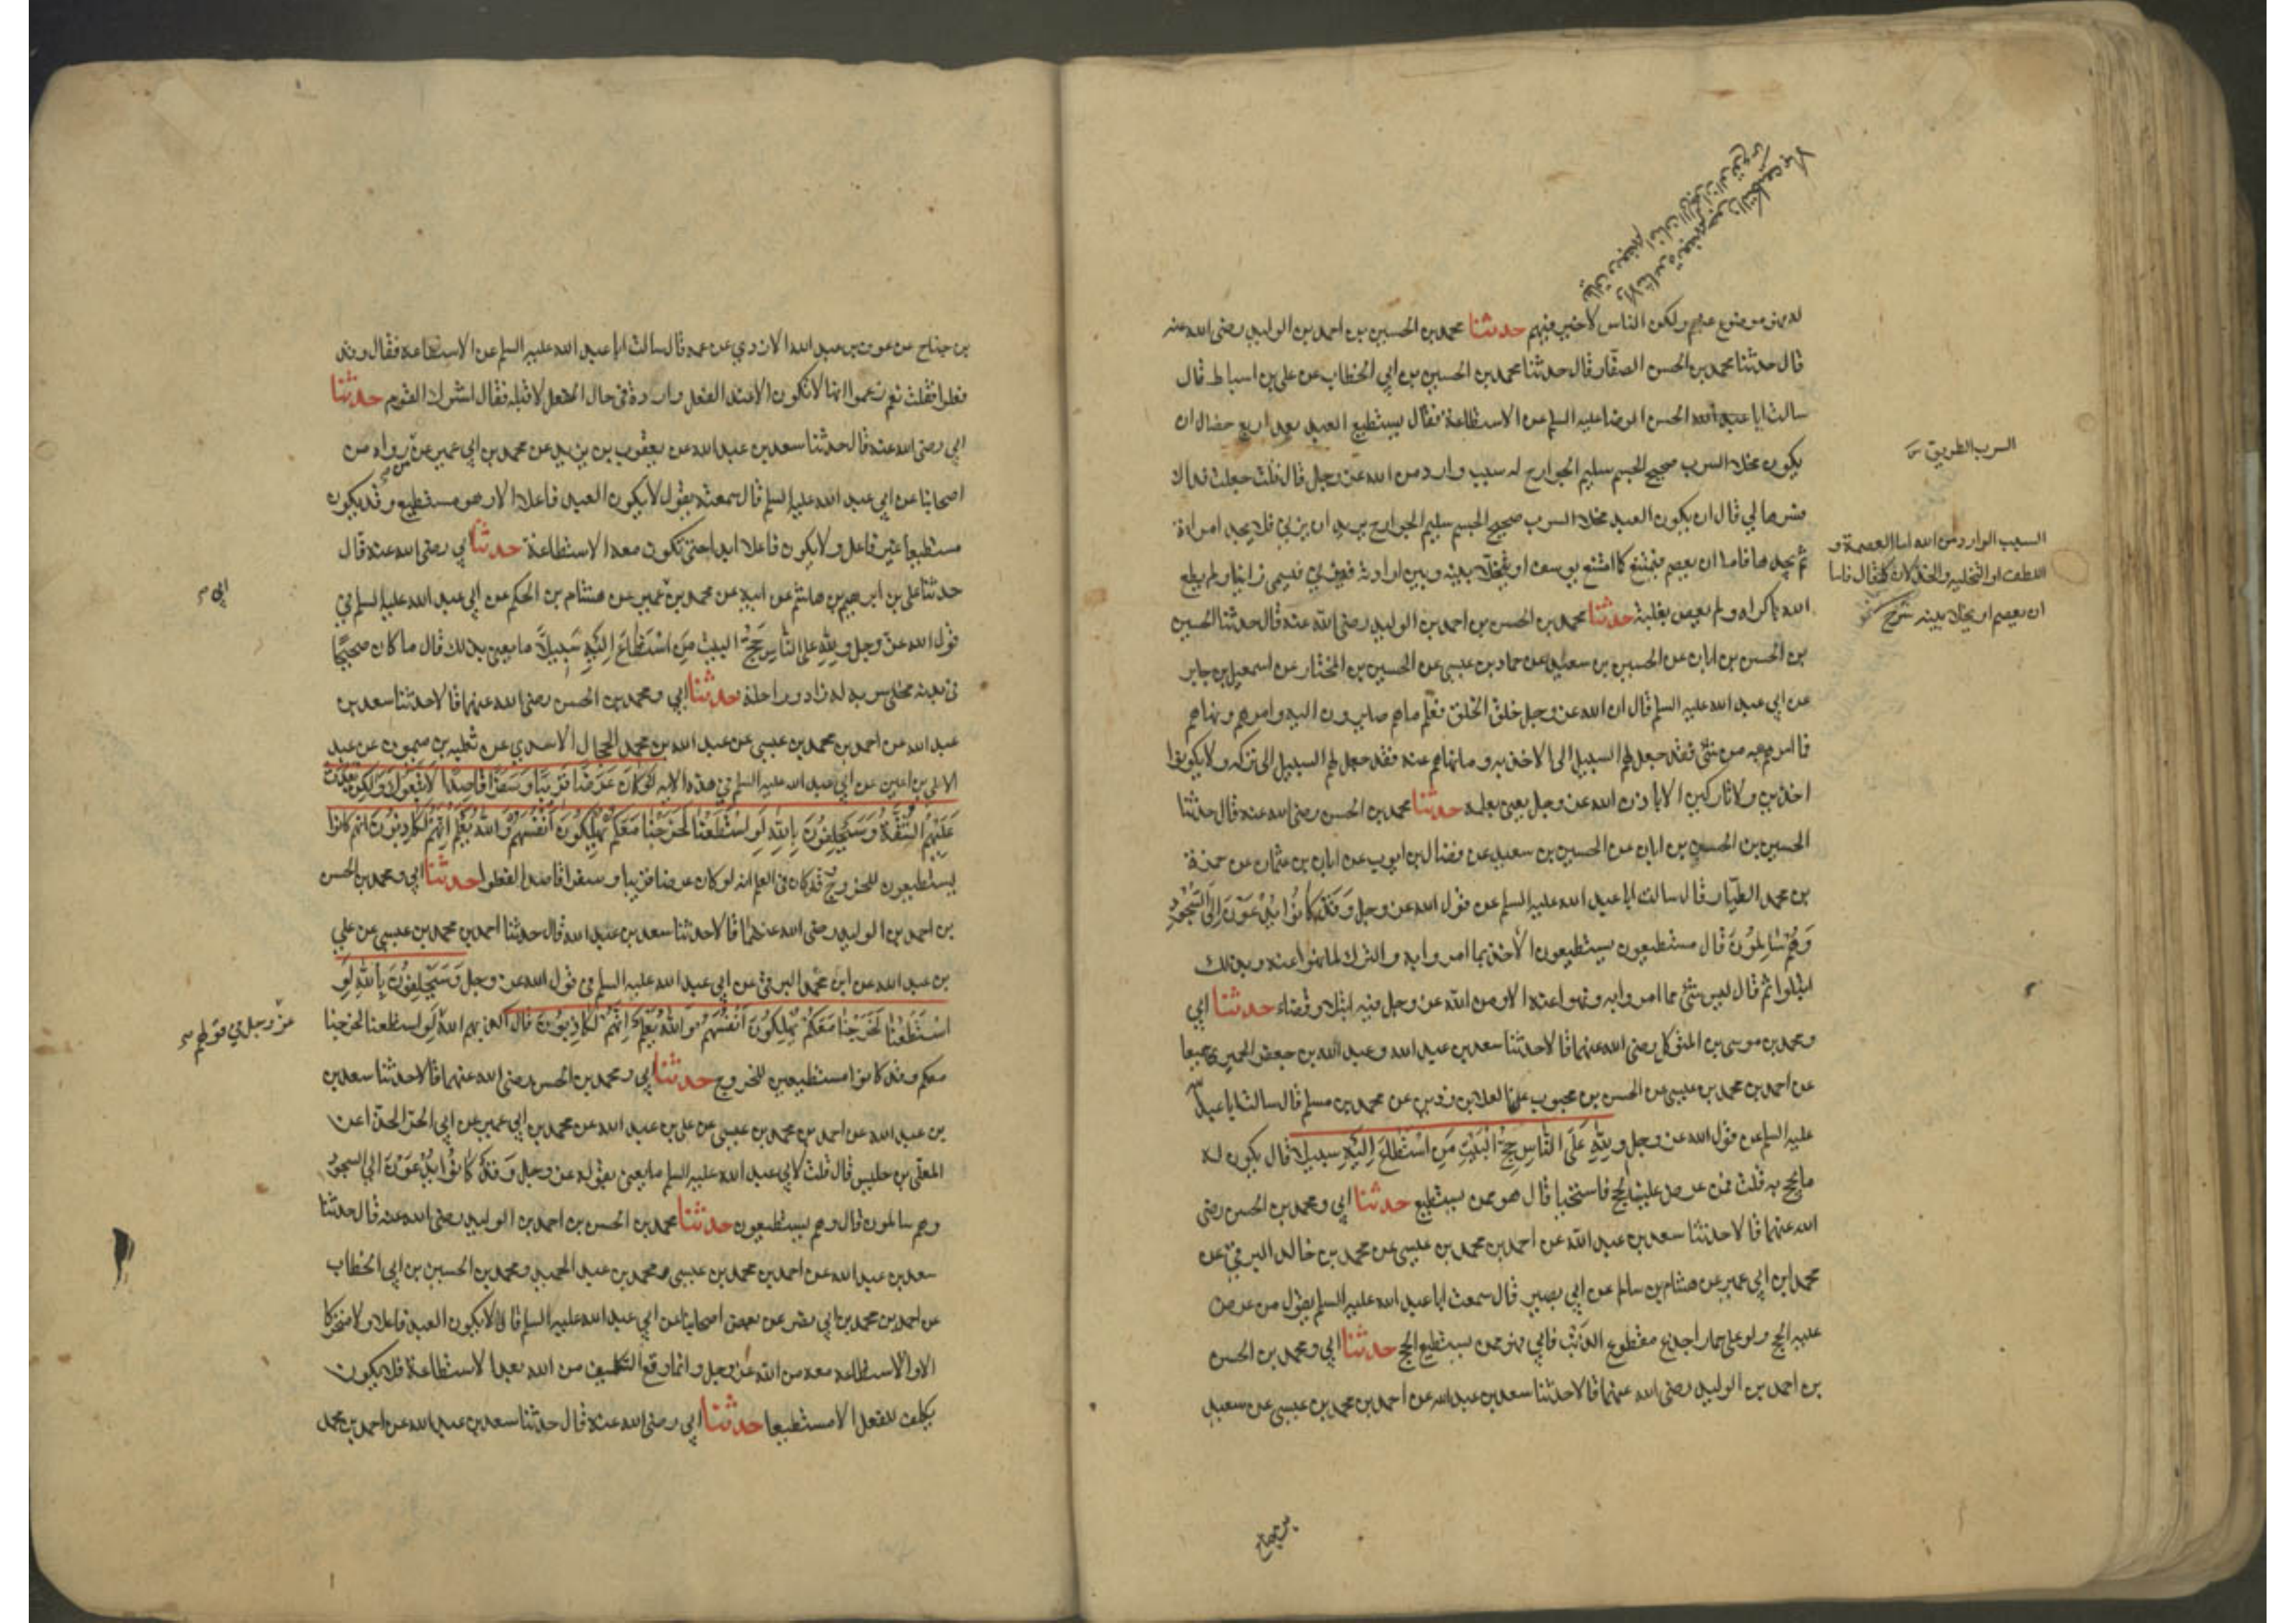 له فهو موضوع عنهم ولكن الناس لا خير فيهم حدثنا محمد بن الحسين بن احمد بن الوليد رضى الله عنه
قال حدثنا محمد بن الحسن الصفار قال حدثنا محمد بن الحسين بن ابي الخطاب عن علي بن اسباط قال
سالت ابا عبد الله الحسن الرضا عليه السلم عن الاستطاعة فقال يستطيع العبد بعد اربع خصال ان
يكون مخلا السرب صحيح الجسم سليم الجوارح له سبب وارد من الله عز وجل قال قلت جعلت فداك
فسرها لي قال ان يكون العبد مخلا السرب صحيح الجسم سليم الجوارح يريد ان يزني فلا يجد امراة
ثم يجدها فاما ان يعصم فيمتنع كما امتنع يوسف او يخلا بينه وبين ارادته فيزني فيسمى زانيا ولم يطع
الله باكراه ولم يعص بغلبة حدثنا محمد بن الحسن بن احمد بن الوليد رضى الله عنه قال حدثنا الحسين
بن الحسن بن ابان عن الحسين بن سعيد عن حماد بن عيسى عن الحسين بن المختار عن اسمعيل بن جابر
عن ابي عبد الله عليه السلم قال ان الله عز وجل خلق الخلق فعلم ما هم صايرون اليه وامرهم ونهاهم
فما امرهم به من شئ فقد جعل لهم السبيل الى الاخذ به وما نهاهم عنه فقد جعل لهم السبيل الى تركه ولا يكونوا
اخذين ولا تاركين الا باذن الله عز وجل يعني بعلمه حدثنا محمد بن الحسن رضى الله عنه قال حدثنا
الحسين بن الحسن بن ابان عن الحسين بن سعيد عن فضال بن ايوب عن ابان بن عثمان عن حمزة
بن محمد الطيار قال سالت ابا عبد الله عليه السلم عن قول الله عز وجل وَقَدْ كَانُوا يُدْعَوْنَ اِلَى السُّجُودِ
وَهُمْ سَالِمُونَ قال مستطيعون يستطيعون الاخذ بما امروا به والترك لما نهوا عنه وبذلك
ابتلوا ثم قال ليس شئ مما امروا به ونهوا عنه الا ومن الله عز وجل فيه ابتلاء وقضاء حدثنا ابي
ومحمد بن موسى بن المتوكل رضى الله عنهما قالا حدثنا سعد بن عبد الله وعبد الله بن جعفر الحميري جميعا
عن احمد بن محمد بن عيسى عن الحسن بن محبوب عن العلا بن رزين عن محمد بن مسلم قال سالت ابا عبد الله
عليه السلم عن قول الله عز وجل وَلِلّٰهِ عَلَى النَّاسِ حِجُّ الْبَيْتِ مَنِ اسْتَطَاعَ اِلَيْهِ سبيلا قال يكون له
ما يحج به قلت فمن عرض عليه الحج فاستحيا قال هو ممن يستطيع حدثنا ابي ومحمد بن الحسن رضى
الله عنهما قالا حدثنا سعد بن عبد الله عن احمد بن محمد بن عيسى عن محمد بن خالد البرقي عن
محمد ابن ابي عمير عن هشام بن سالم عن ابي بصير قال سمعت ابا عبد الله عليه السلم يقول من عرض
عليه الحج ولو على حمار اجدع مقطوع الذنب فابى فهو ممن يستطيع الحج حدثنا ابي ومحمد بن الحسن
بن احمد بن الوليد رضى الله عنهما قالا حدثنا سعد بن عبد الله عن احمد بن محمد بن عيسى عن سعيد
بن جناح
السرب الطريق
السبب الوارد من الله اما العصمة و
اللطف او التخليه والخذلان كما قال فاما
ان يعصم او يخلا بينه شرح
بن جناح عن عوف بن عبد الله الازدي عن عمه قال سالت ابا عبد الله عليه السلم عن الاستطاعة فقال وقد
فعلوا فقلت نعم زعموا انها لا تكون الا عند الفعل وارادة في حال الفعل لا قبله فقال اشرك القوم حدثنا
ابي رضى الله عنه قال حدثنا سعد بن عبد الله عن يعقوب بن يزيد عن محمد بن ابي عمير عمن رواه من
اصحابنا عن ابي عبد الله عليه السلم قال سمعته يقول لا يكون العبد فاعلا الا وهو مستطيع وقد يكون
مستطيعا غير فاعل ولا يكون فاعلا ابدا حتى تكون معه الاستطاعة حدثنا ابي رضى الله عنه قال
حدثنا علي بن ابرهيم بن هاشم عن ابيه عن محمد بن عمير عن هشام بن الحكم عن ابي عبد الله عليه السلم في
قول الله عز وجل وَلِلّٰهِ عَلَى النَّاسِ حِجُّ الْبَيْتِ مَنِ اسْتَطَاعَ اِلَيْهِ سَبِيلاً ما يعني بذلك قال ما كان صحيحًا
في بدنه مخلى سربه له زاد وراحلة حدثنا ابي ومحمد بن الحسن رضى الله عنهما قالا حدثنا سعد بن
عبد الله عن احمد بن محمد بن عيسى عن عبد الله بن محمد الحجال الاسدي عن ثعلبه بن ميمون عن عبد
الاعلى بن اعين عن ابي عبد الله عليه السلم في هذه الايه لَوْ كَانَ عَرَضًا قَرِيبًا وَسَفَرًا قَاصِدًا لَاتَّبَعُوكَ وَلَكِنْ بَعُدَتْ
عَلَيْهِمُ الشُّقَّةُ وَسَيَحْلِفُونَ بِاللّٰهِ لَوِ اسْتَطَعْنَا لَخَرَجْنَا مَعَكُمْ يُهْلِكُونَ اَنْفُسَهُمْ وَاللّٰهُ يَعْلَمُ اِنَّهُمْ لَكَاذِبُونَ انهم كانوا
يستطيعون للخروج وقد كان في العلم انه لو كان عرضا قريبا وسفرا قاصدا لفعلوا حدثنا ابي ومحمد بن الحسن
بن احمد بن الوليد رضى الله عنهما قالا حدثنا سعد بن عبد الله قال حدثنا احمد بن محمد بن عيسى عن علي
بن عبد الله عن ابن محمد البرقي عن ابي عبد الله عليه السلم في قول الله عز وجل وَسَيَحْلِفُونَ بِاللّٰهِ لَوِ
اسْتَطَعْنَا لَخَرَجْنَا مَعَكُمْ يُهْلِكُونَ اَنْفُسَهُمْ وَاللّٰهُ يَعْلَمُ اِنَّهُمْ لَكَاذِبُونَ قال اكذبهم الله لو استطعنا لخرجنا
معكم وقد كانوا مستطيعين للخروج حدثنا ابي ومحمد بن الحسن رضى الله عنهما قالا حدثنا سعد بن
بن عبد الله عن احمد بن محمد بن عيسى عن علي بن عبد الله عن محمد بن ابي عمير عن ابي الحسن الحذا عن
المعلى بن خنيس قال قلت لابي عبد الله عليه السلم ما يعني بقوله عز وجل وَقَدْ كَانُوا يُدْعَوْنَ الى السجود
وهم سالمون قال وهم يستطيعون حدثنا محمد بن الحسن بن احمد بن الوليد رضى الله عنه قال حدثنا
سعد بن عبد الله عن احمد بن محمد بن عيسى ومحمد بن عبد الحميد ومحمد بن الحسين بن ابي الخطاب
عن احمد بن محمد بن ابي نصر عن بعض اصحابنا عن ابي عبد الله عليه السلم قال لا يكون العبد فاعلا ولا متحركا
الا والاستطاعه معه من الله عز وجل وانما وقع التكليف من الله بعد الاستطاعة فلا يكون
يكلف للفعل الا مستطيعا حدثنا ابي رضى الله عنه قال حدثنا سعد بن عبد الله عن احمد بن محمد
ابي
عز وجل في قولهم